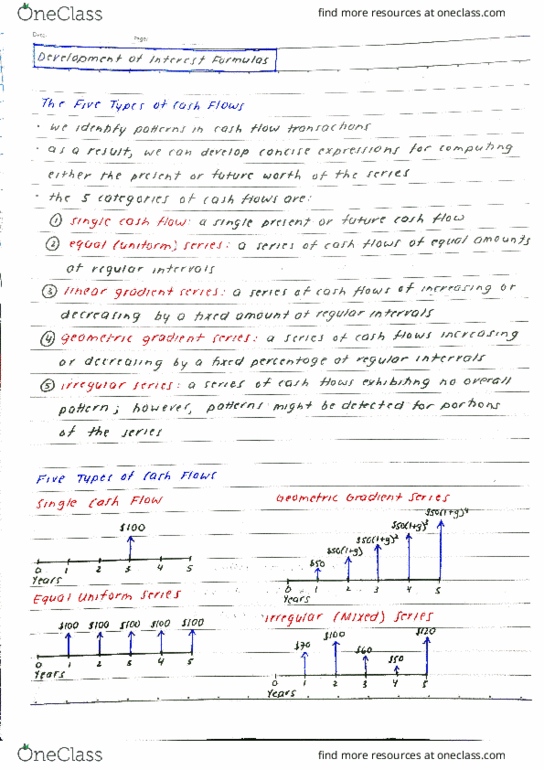 OneClass
find more resources at oneclass.com
Date:
Page:
Development of Interest Formulas
The Five Types of Cash Flows
· we identify patterns in cash flow transactions
· as a result, we can develop concise expressions for computing
either the present or future worth of the series
· the 5 categories of cash flows are:
① single cash flow: a single present or future cash flow
② equal (uniform) series: a series of cash flows of equal amounts
at regular intervals
③ linear gradient series: a series of cash flows of increasing or
decreasing by a fixed amount at regular intervals
④ geometric gradient series: a series of cash flows increasing
or decreasing by a fixed percentage at regular intervals
⑤ irregular series: a series of cash flows exhibiting no overall
pattern; however, patterns might be detected for portions
of the series
Five Types of Cash Flows
Single Cash Flow
$100
0 1 2 3 4 5
Years
Equal Uniform Series
$100 $100 $100 $100 $100
0 1 2 3 4 5
Years
Geometric Gradient Series
$50 $50(1+g) $50(1+g)² $50(1+g)³ $50(1+g)⁴
0 1 2 3 4 5
Years
Irregular (Mixed) Series
$70 $100 $60 $50 $120
0 1 2 3 4 5
Years
OneClass
find more resources at oneclass.com